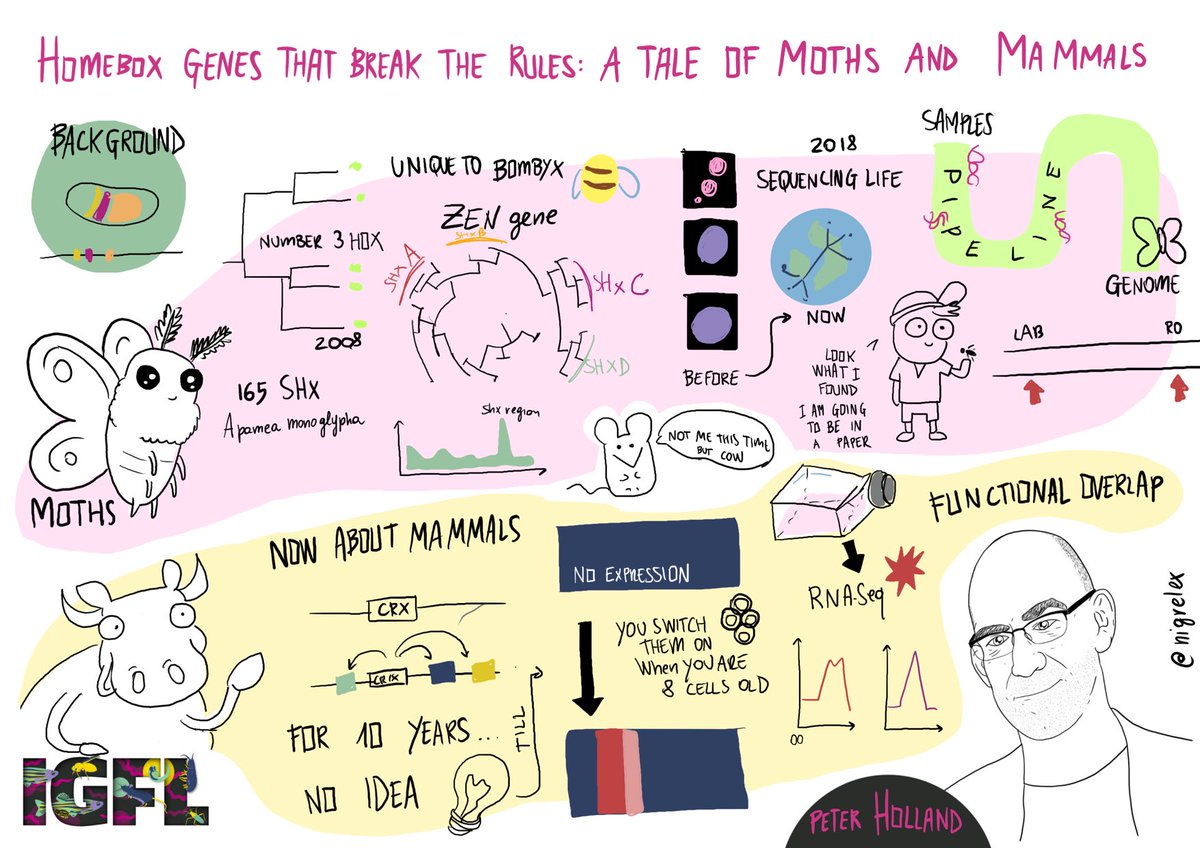 HOMEBOX GENES THAT BREAK THE RULES: A TALE OF MOTHS AND MAMMALS
BACKGROUND
NUMBER 3 HOX
2008
UNIQUE TO BOMBYX
ZEN gene
SHXB
SHX A
SHX C
SHXD
2018
SEQUENCING LIFE
BEFORE
NOW
SAMPLES
PIPELINE
GENOME
LAB
RO
LOOK
WHAT I
FOUND
I AM GOING
TO BE IN
A PAPER
MOTHS
165 SHX
Apamea monoglypha
Shx region
NOT ME THIS TIME
BUT COW
NOW ABOUT MAMMALS
CRX
CRX
FOR 10 YEARS...
NO IDEA
TILL
NO EXPRESSION
YOU SWITCH
THEM ON
When YOU ARE
8 CELLS OLD
RNA-Seq
FUNCTIONAL OVERLAP
@nigrelex
IGFL
PETER HOLLAND